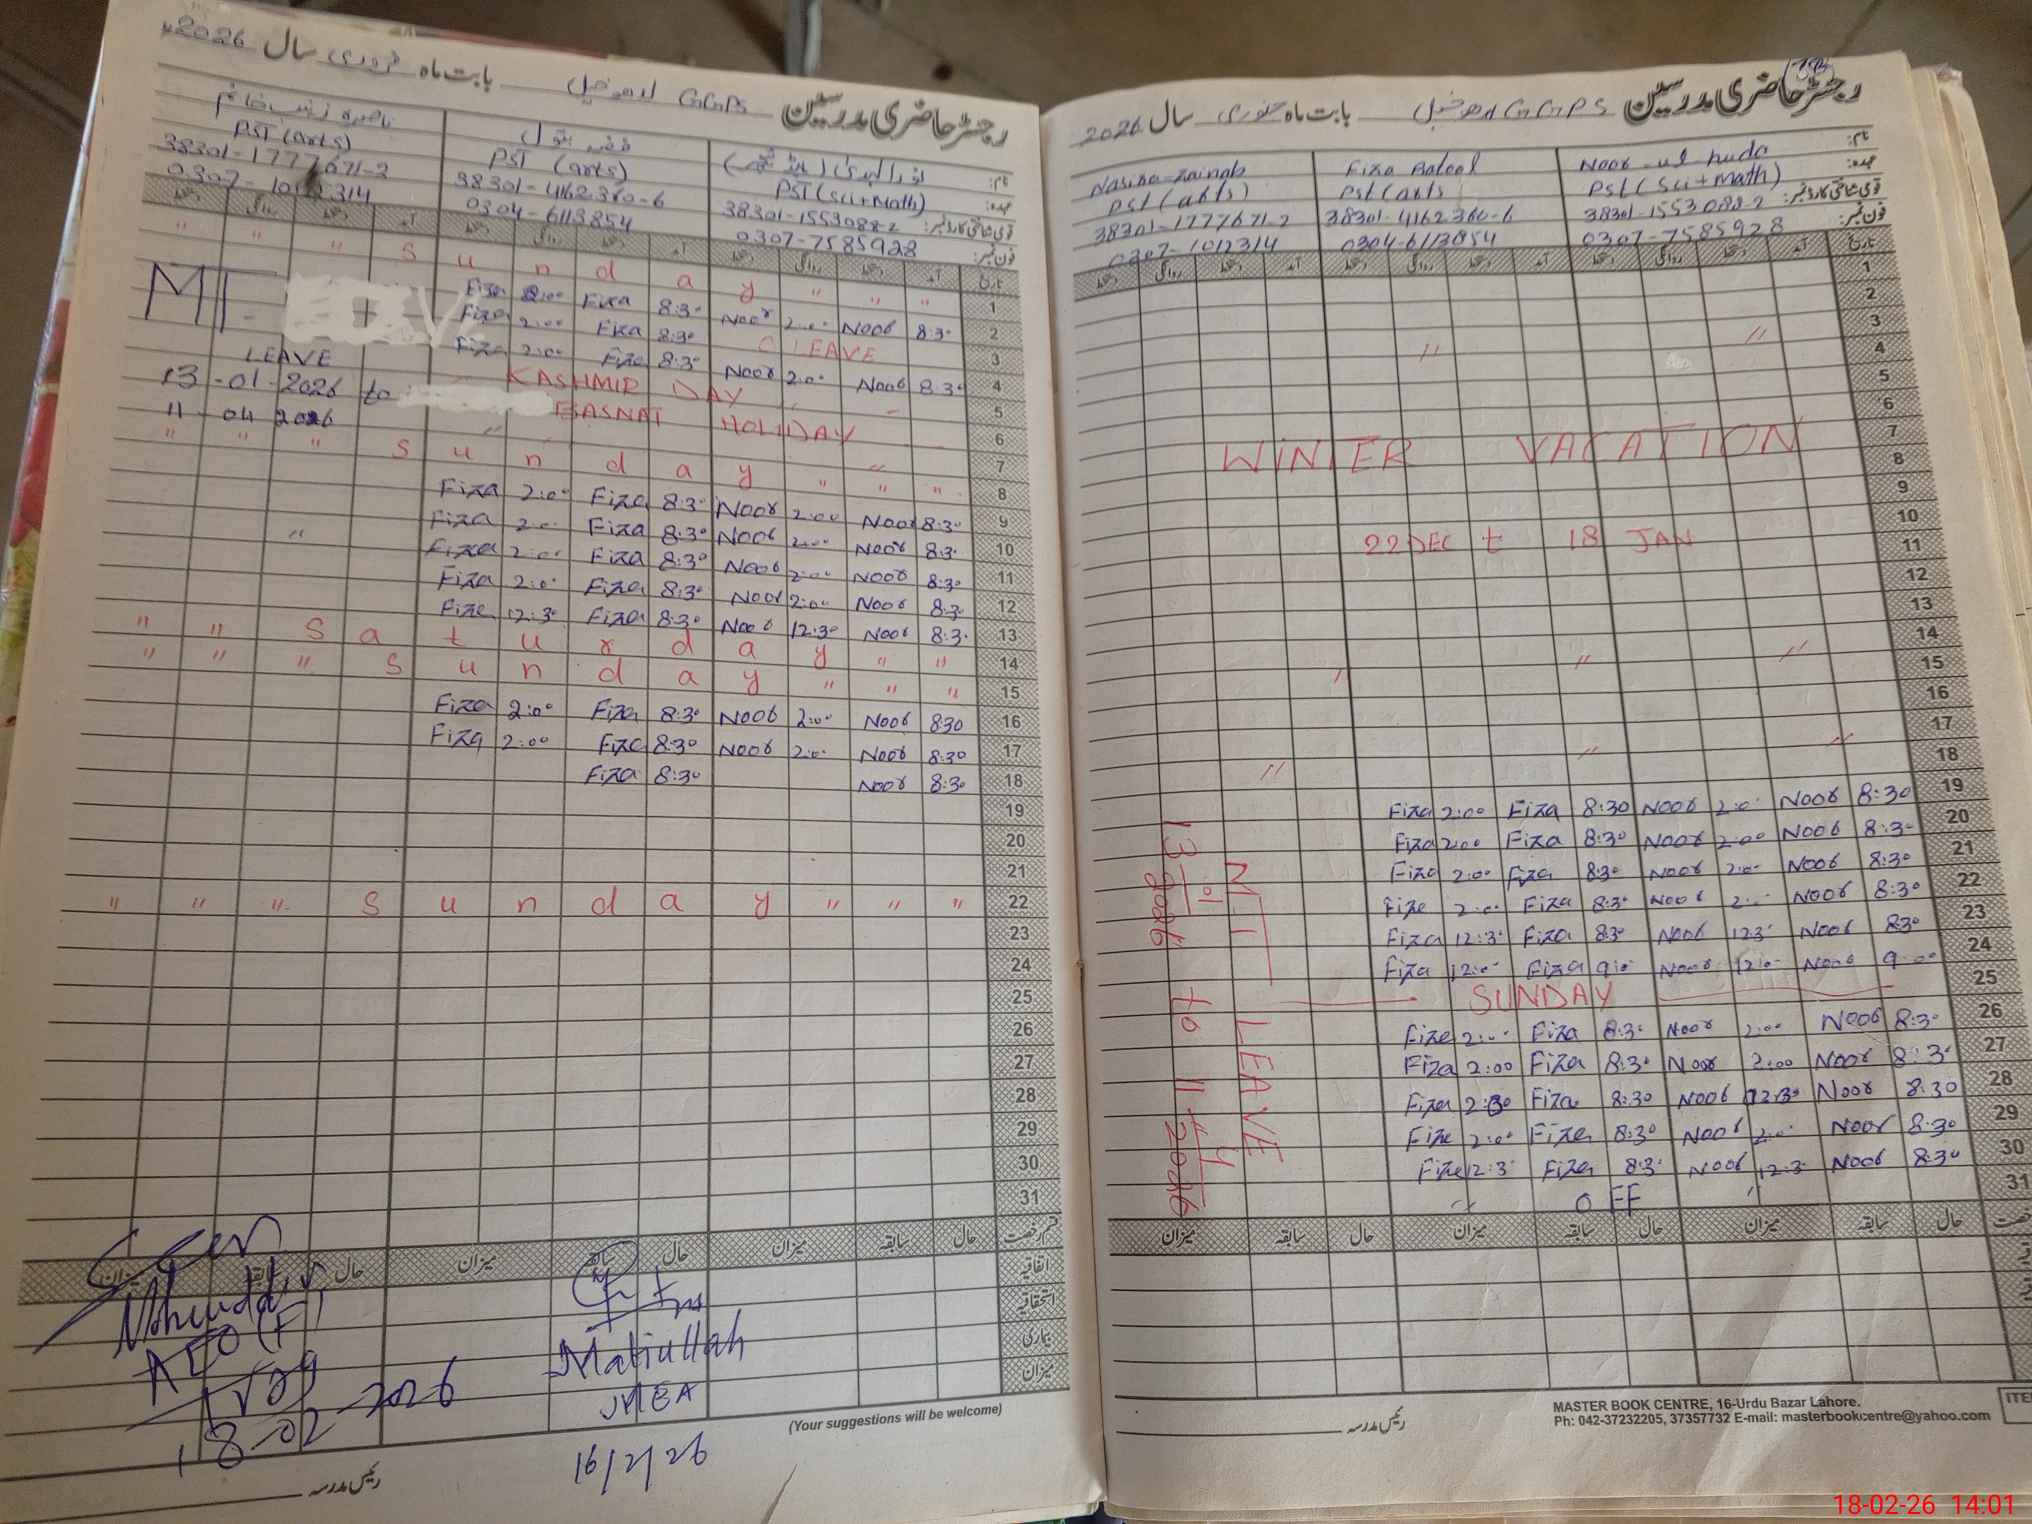 رجسٹر حاضری مدرسین GGPS بابت ماہ فروری سال 2026
نام: نورالہدیٰ (ہیڈ ٹیچر) فضہ بتول ناصرہ زینب خانم
عہدہ: PST (Sci+Math) PST (arts) PST (arts)
قومی شناختی کارڈ نمبر: 38301-1553088-2 38301-4162360-6 38301-1777671-2
فون نمبر: 0307-7585928 0304-6113854 0307-1012314
تاریخ آمد دستخط روانگی دستخط آمد دستخط روانگی دستخط آمد دستخط روانگی دستخط
" " " S u n d a y " " " 1
Fiza 2:00 Fiza 8:30 Noor 2:00 Noor 8:30 2
Fiza 2:00 Fiza 8:30 C LEAVE 3
Fiza 2:00 Fiza 8:30 Noor 2:00 Noor 8:30 4
LEAVE
13-01-2026 to
11-04 2026
KASHMIR DAY 5
BASNAT HOLIDAY 6
" 7
" " " S u n d a y " " " 8
Fiza 2:00 Fiza 8:30 Noor 2:00 Noor 8:30 9
Fiza 2:00 Fiza 8:30 Noor 2:00 Noor 8:30 10
Fiza 2:00 Fiza 8:30 Noor 2:00 Noor 8:30 11
Fiza 2:00 Fiza 8:30 Noor 2:00 Noor 8:30 12
Fiza 12:30 Fiza 8:30 Noor 12:30 Noor 8:30 13
" " S a t u r d a y " " 14
" " " S u n d a y " " " 15
Fiza 2:00 Fiza 8:30 Noor 2:00 Noor 8:30 16
Fiza 2:00 Fiza 8:30 Noor 2:00 Noor 8:30 17
Fiza 8:30 Noor 8:30 18
19
20
21
" " " S u n d a y " " " 22
23
24
25
26
27
28
29
30
31
قسم رخصت حال سابقہ میزان حال سابقہ میزان حال سابقہ میزان
اتفاقیہ
استحقاقیہ
بیماری
میزان
AEO (F)
18-02-2026
Matiullah
MEA
16/2/26
(Your suggestions will be welcome)
رئیس مدرسہ
رجسٹر حاضری مدرسین GGPS بابت ماہ جنوری سال 2026
نام: Noor-ul huda Fiza Batool Nasira Zainab
عہدہ: Pst (Sci+Math) Pst (arts) Pst (arts)
قومی شناختی کارڈ نمبر: 38301-1553088-2 38301-4162360-6 38301-1777671-2
فون نمبر: 0307-7585928 0304-6113854 0307-1012314
تاریخ آمد دستخط روانگی دستخط آمد دستخط روانگی دستخط آمد دستخط روانگی دستخط
1
2
3
" " 4
5
6
7
WINTER VACATION 8
9
10
22 DEC t 18 JAN 11
12
13
14
" " " 15
16
17
" " " 18
Fiza 2:00 Fiza 8:30 Noor 2:00 Noor 8:30 19
Fiza 2:00 Fiza 8:30 Noor 2:00 Noor 8:30 20
Fiza 2:00 Fiza 8:30 Noor 2:00 Noor 8:30 21
Fiza 2:00 Fiza 8:30 Noor 2:00 Noor 8:30 22
Fiza 12:30 Fiza 8:30 Noor 12:30 Noor 8:30 23
Fiza 12:00 Fiza 9:00 Noor 12:00 Noor 9:00 24
SUNDAY 25
Fiza 2:00 Fiza 8:30 Noor 2:00 Noor 8:30 26
Fiza 2:00 Fiza 8:30 Noor 2:00 Noor 8:30 27
Fiza Fiza 8:30 Noor 12:30 Noor 8:30 28
Fiza 2:00 Fiza 8:30 Noor 2:00 Noor 8:30 29
Fiza 12:30 Fiza 8:30 Noor 12:30 Noor 8:30 30
" OFF " 31
LEAVE
13-01-2026 to 11-4-2026
حال سابقہ میزان حال سابقہ میزان حال سابقہ میزان
رئیس مدرسہ
MASTER BOOK CENTRE, 16-Urdu Bazar Lahore.
Ph: 042-37232205, 37357732 E-mail: masterbookcentre@yahoo.com
18-02-26 14:01